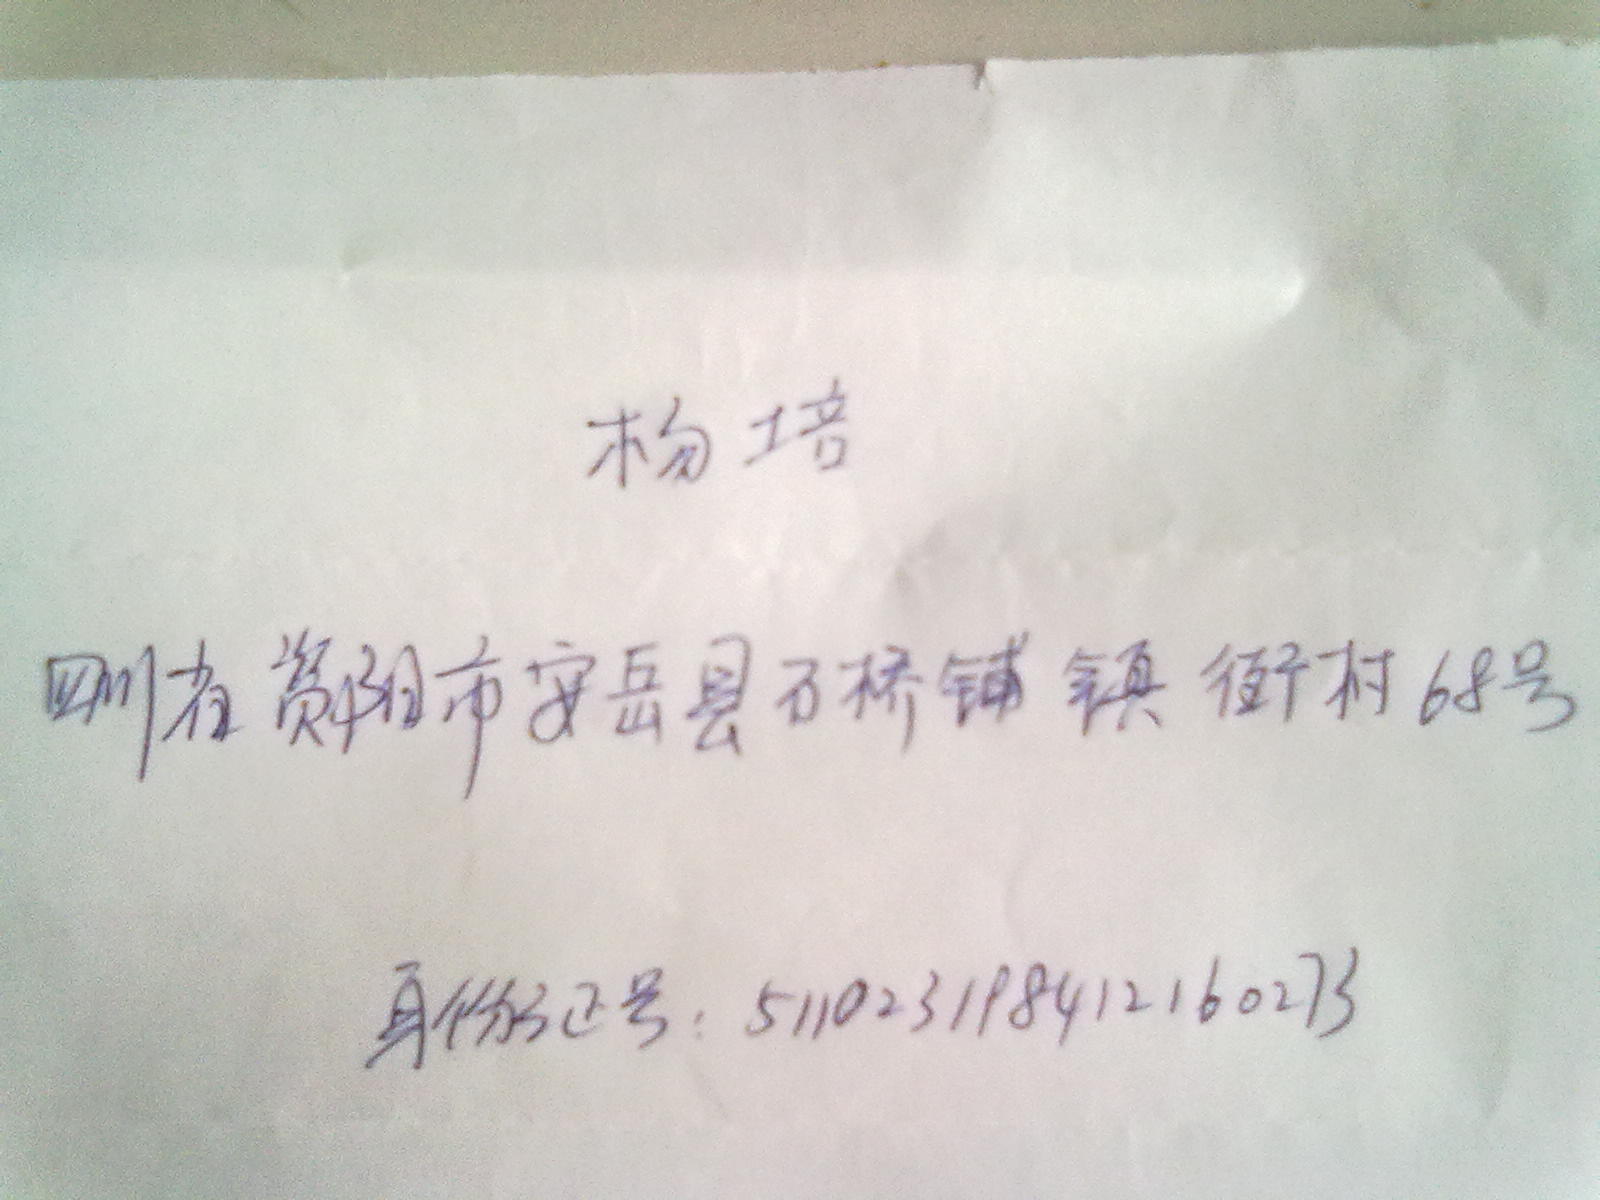 杨培
四川省资阳市安岳县石桥铺镇街村68号
身份证号：511023198412160273